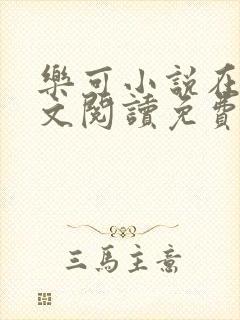 樂可小說在
文閱讀免費
三馬主意